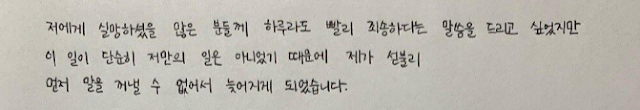 저에게 실망하셨을 많은 분들께 하루라도 빨리 죄송하다는 말씀을 드리고 싶었지만
이 일이 단순히 저만의 일은 아니었기 때문에 제가 섣불리
먼저 말을 꺼낼 수 없어서 늦어지게 되었습니다.